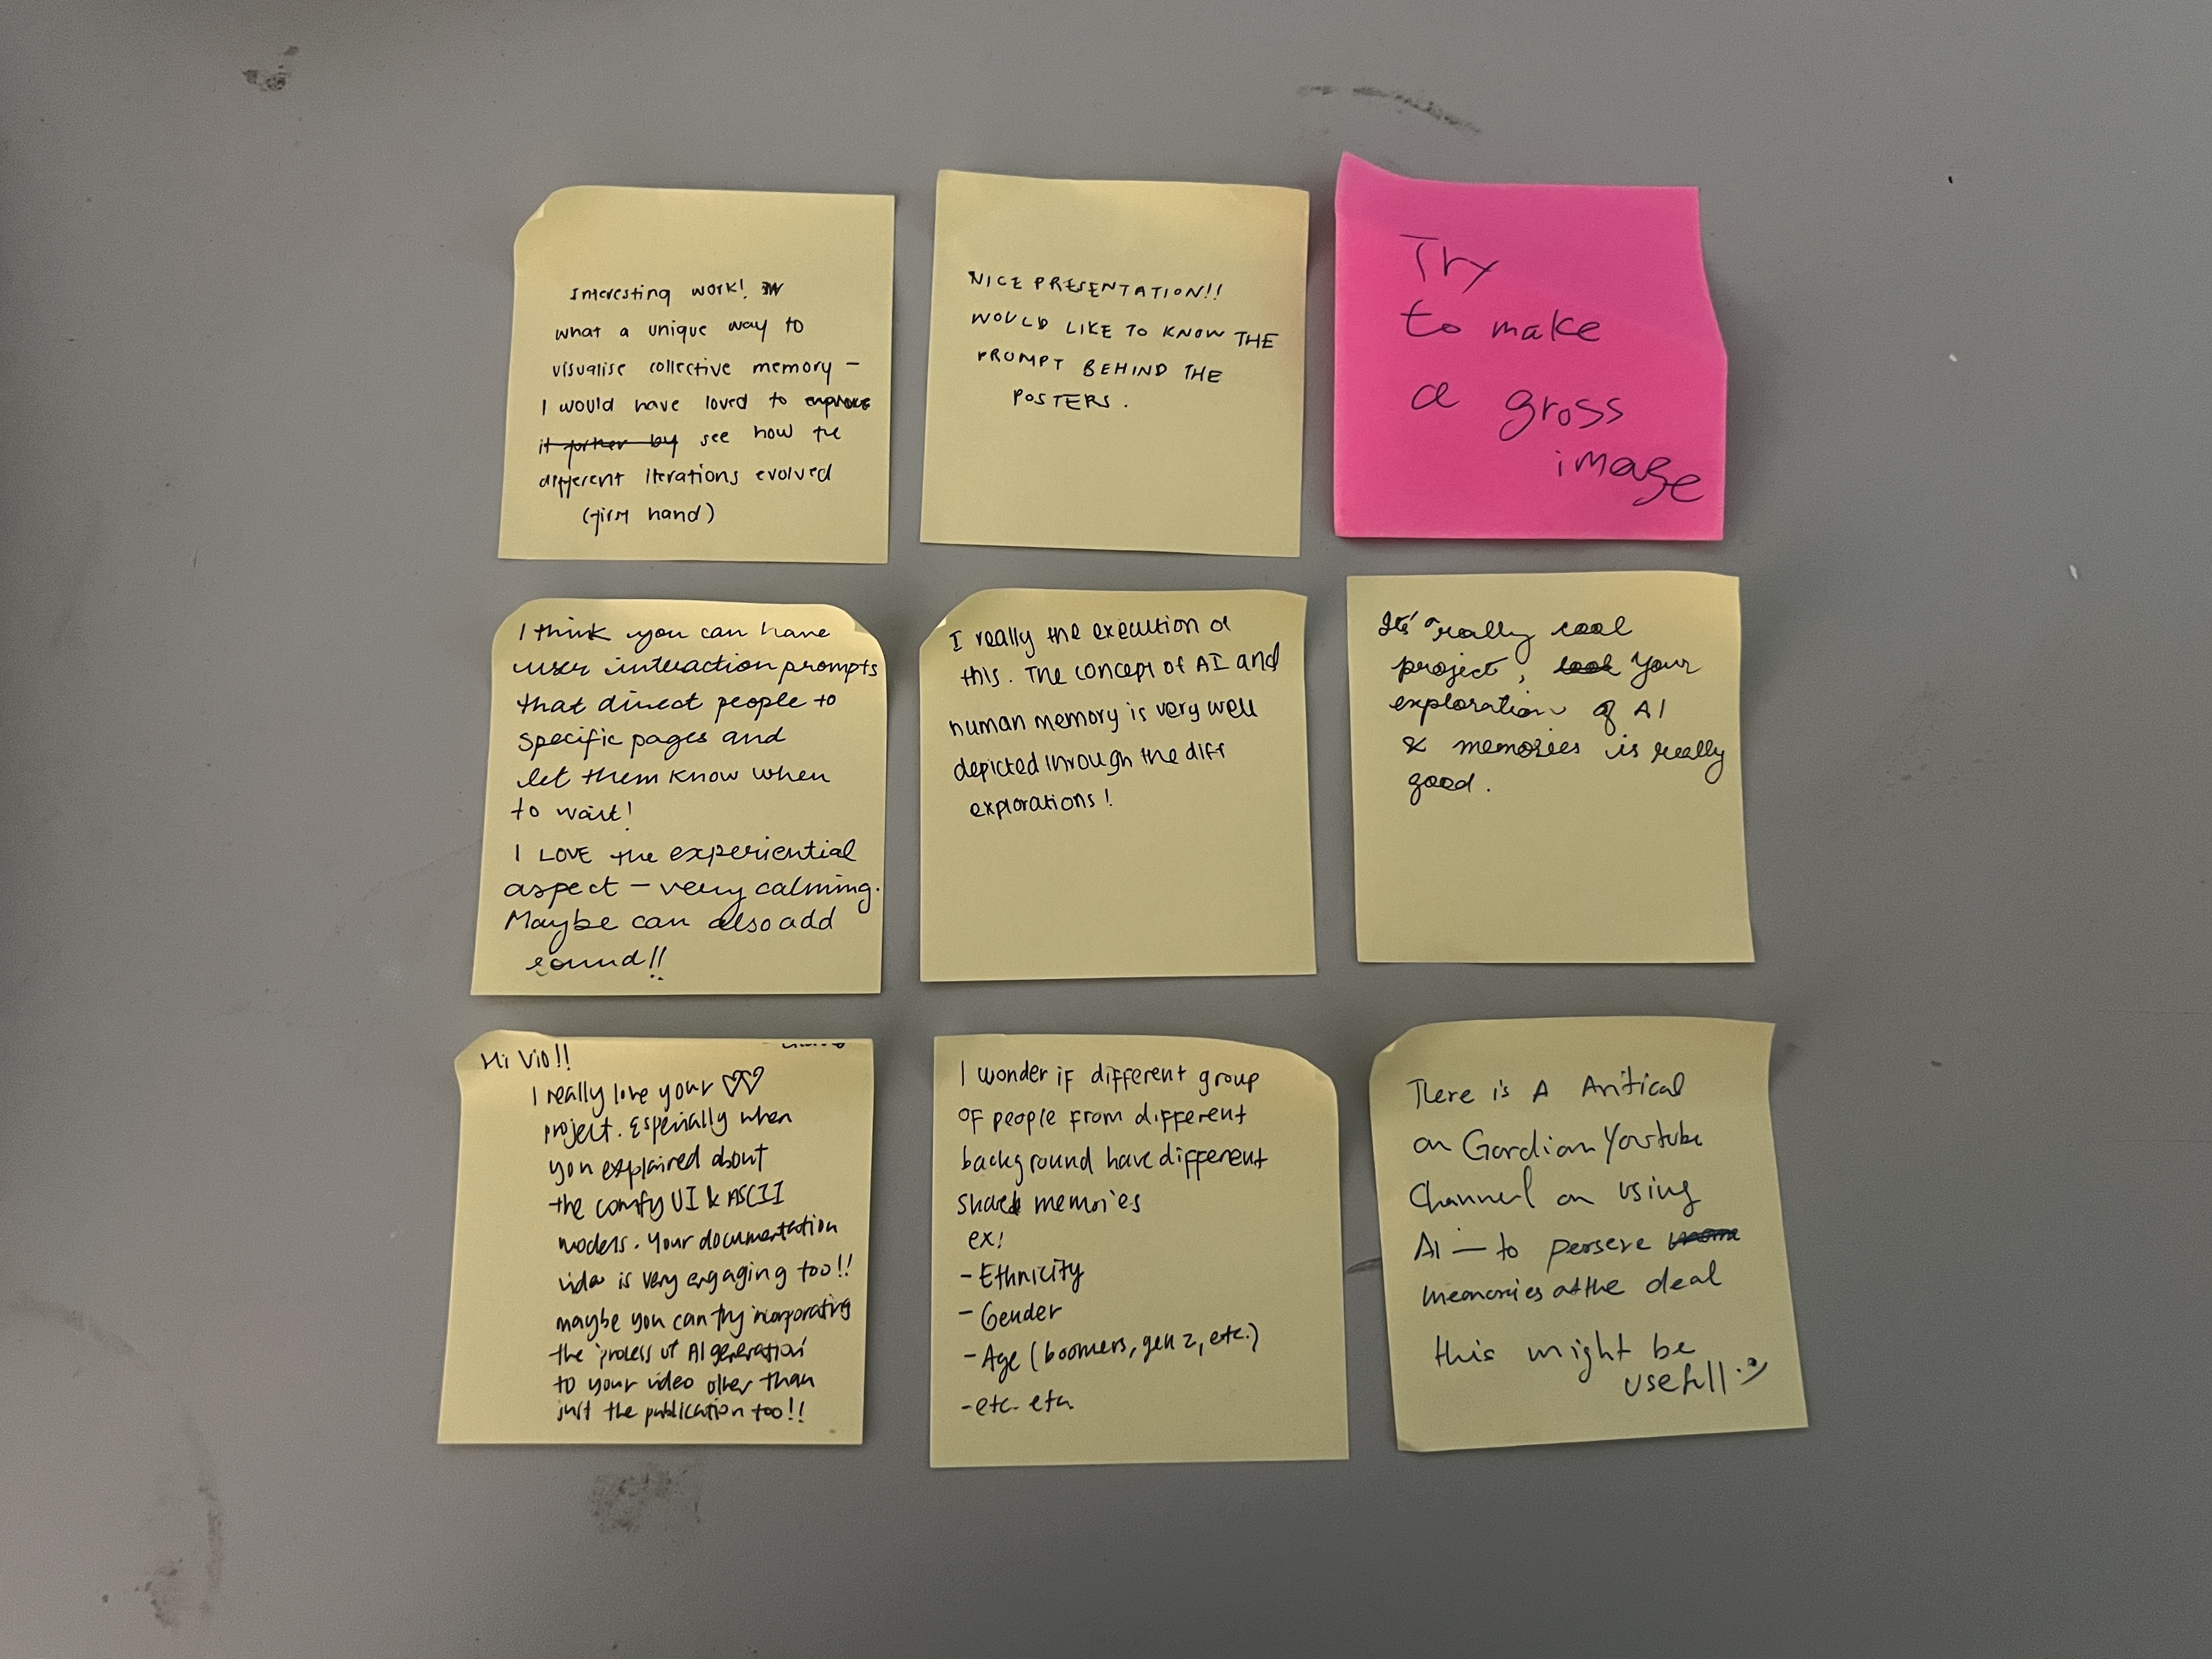 Interesting work!
what a unique way to
visualise collective memory –
I would have loved to
it further by see how the
different iterations evolved
(first hand)
NICE PRESENTATION!!
WOULD LIKE TO KNOW THE
PROMPT BEHIND THE
POSTERS.
Try
to make
a gross
image
I think you can have
user interaction prompts
that direct people to
specific pages and
let them know when
to wait!
I LOVE the experiential
aspect – very calming.
Maybe can also add
sound!!
I really the execution of
this. The concept of AI and
human memory is very well
depicted through the diff
explorations!
Its a really cool
project, look Your
exploration of AI
& memories is really
good.
Hi Vio!!
I really love your ♡♡
project. Especially when
you explained about
the comfy UI & ASCII
models. Your documentation
video is very engaging too!!
maybe you can try incorporating
the 'process of AI generation'
to your video other than
just the publication too!!
I wonder if different group
of people from different
background have different
shared memories
ex:
- Ethnicity
- Gender
- Age (boomers, gen z, etc.)
- etc. etc.
There is A Aritical
on Gardian Youtube
Channel on using
AI — to persere
memories of the deal
this might be
usefull :)